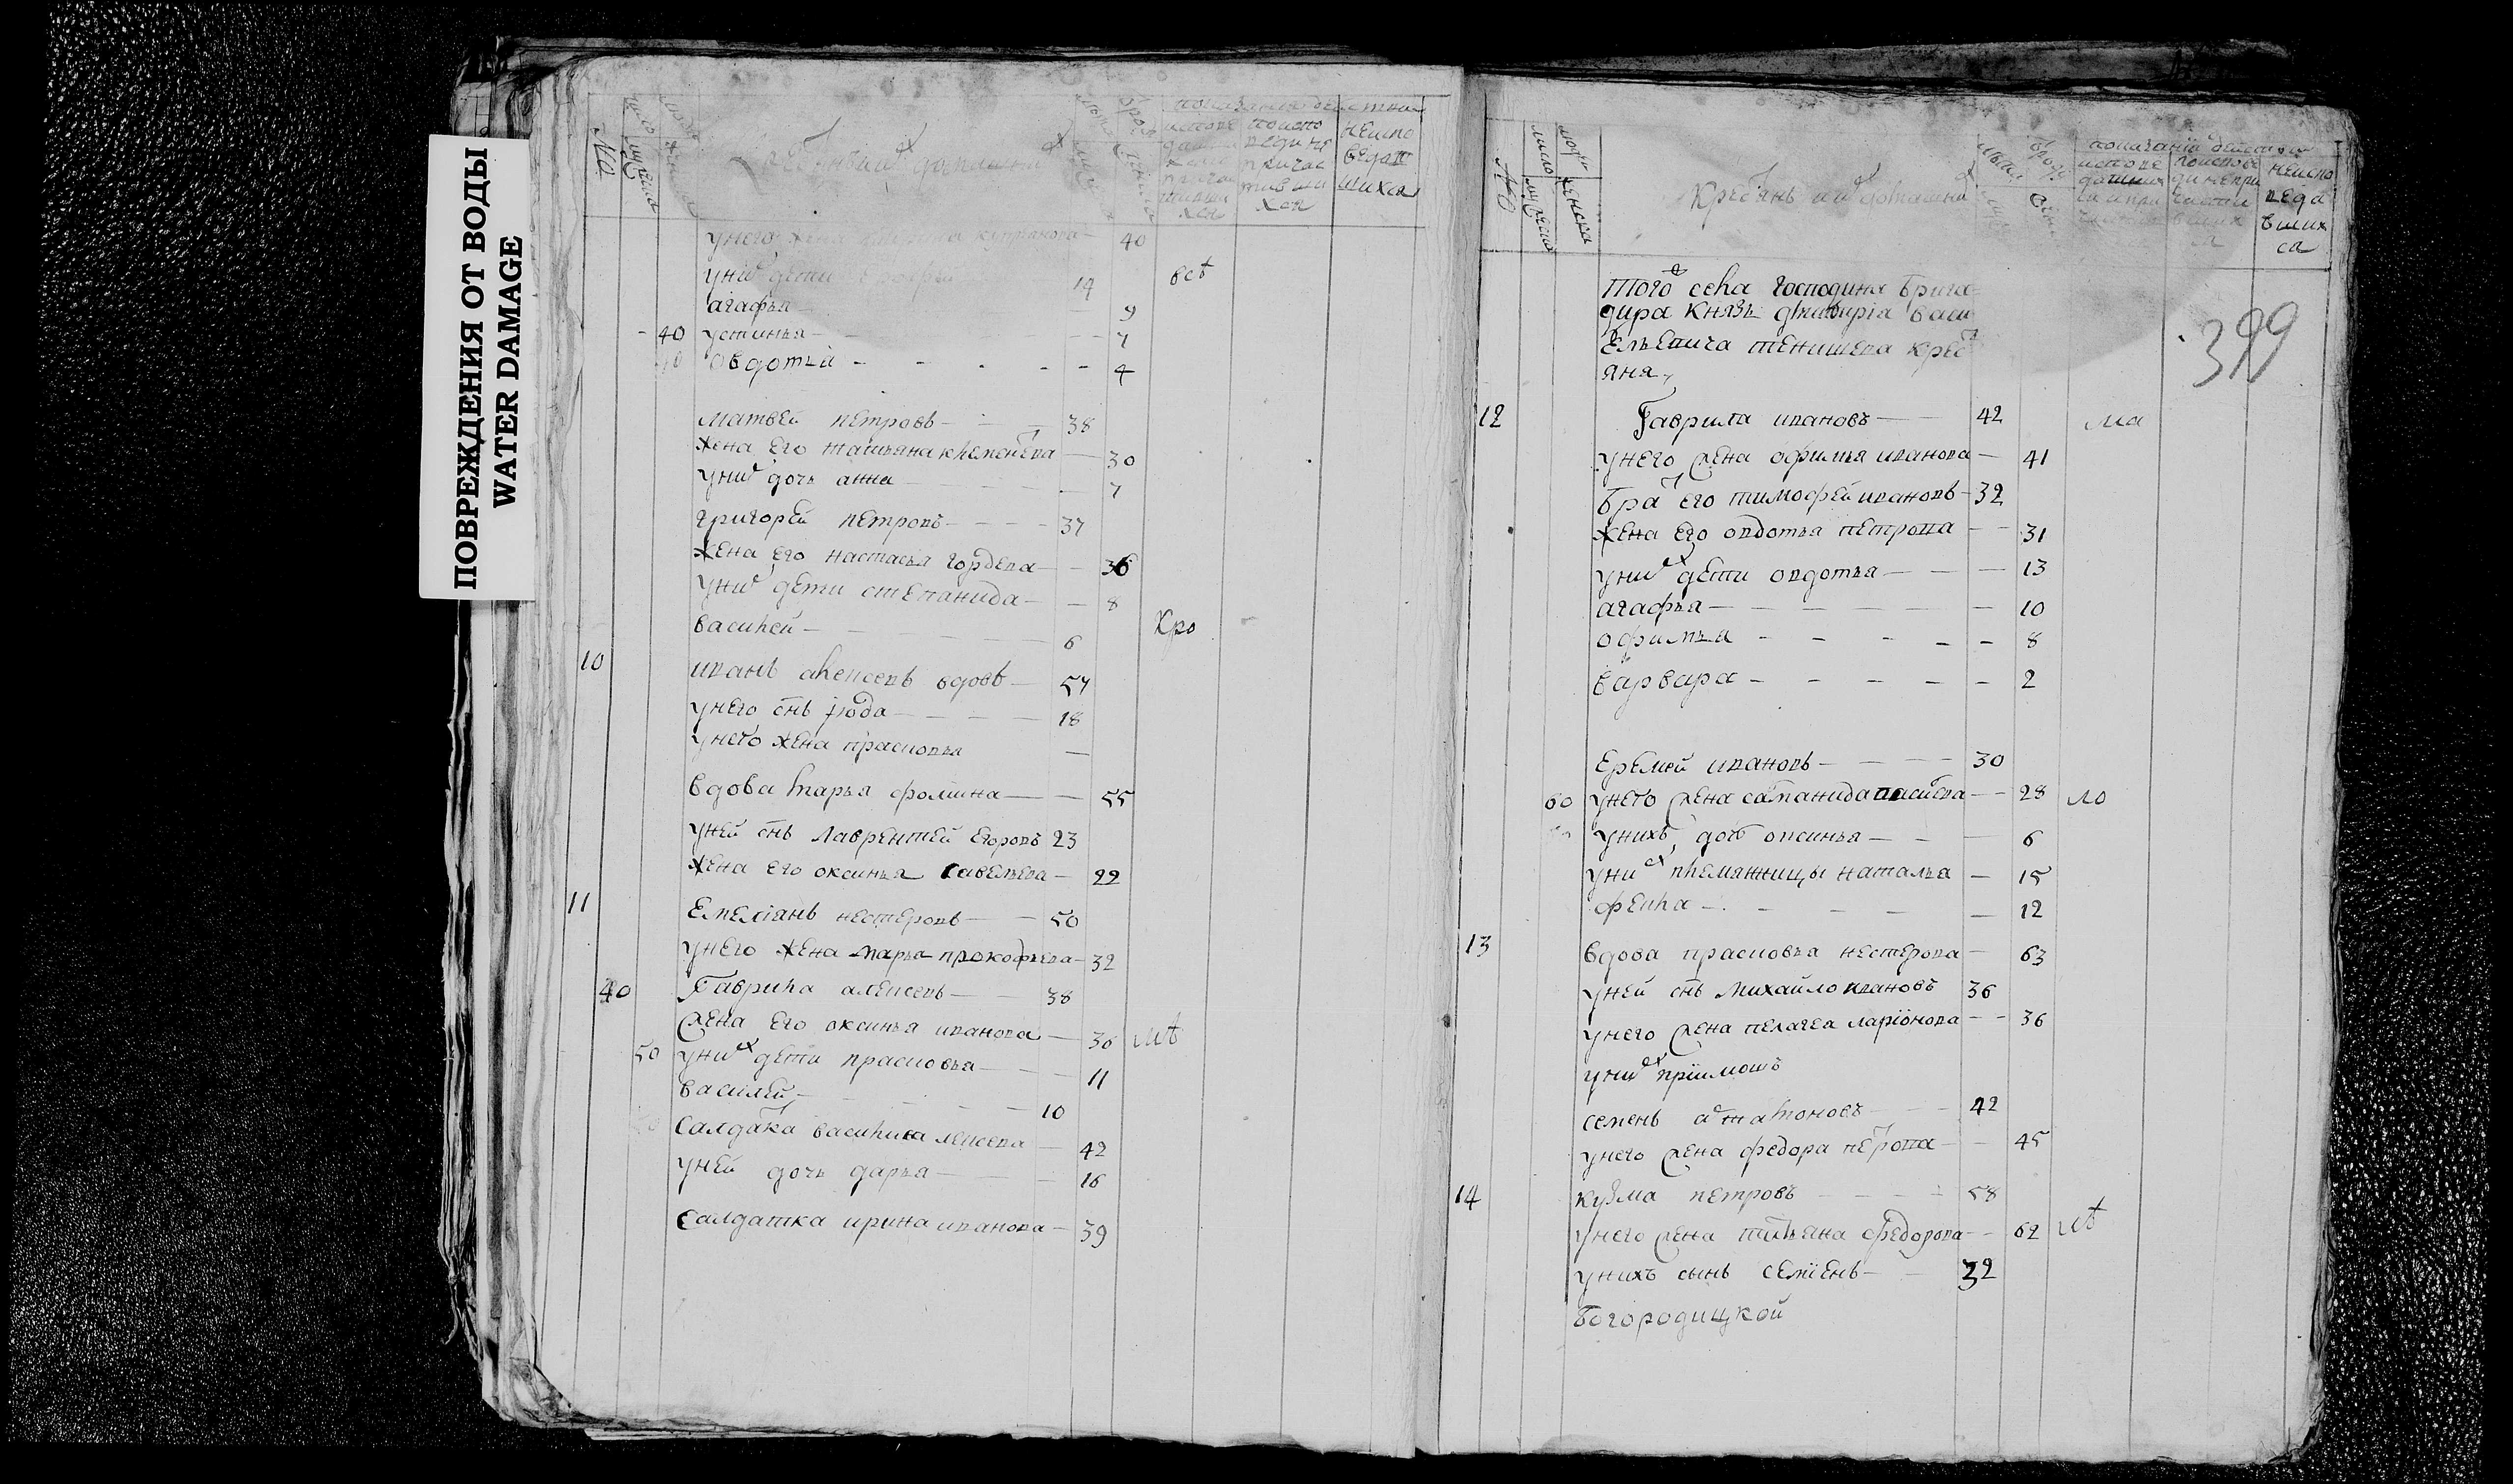 ПОВРЕЖДЕНИЯ ОТ ВОДЫ
WATER DAMAGE
№
число
людей
мужеска
женска
показание действа
неиспо
ведав
шихся
унего жена 40
унихъ дети 14 всѣ
агафья 9
40 устинья 7
овдотья 4
матвей петровъ 38
жена его татьяна клементева 30
унихъ дочь анна 7
григорей петровъ 37
жена его настасья гордева 36
унихъ дети степанида 8
василей 6 Хро
10 иванъ алексевъ вдовъ 57
унего снъ июда 18
унего жена прасковья
вдова марья фомина 55
уней снъ лаврентей егоровъ 23
жена его оксинья савельева 22
11 емелiянъ нестеровъ 50
унего жена марья прокофьева 32
40 Гаврила алексевъ 38
жена его оксинья иванова 36
50 унихъ дети прасковья 11
василей 10
салдатка василиса алексева 42
уней дочь дарья 16
салдатка ирина иванова 39
№
число
людей
мужеска
женска
Крестьянъ ихъ домашнихъ
показанiи действа
неиспо
веда
вших
ся
того села господина брига
дира князь дмитрiя васи
льевича тенишева крест
яня
399
12 Гаврила ивановъ 42
унего жена офимья иванова 41
братъ его тимофей ивановъ 32
жена его овдотья петрова 31
унихъ дети овдотья 13
агафья 10
офимья 8
варвара 2
еремей ивановъ 30
60 унего жена степанида васильева 28
унихъ дочь оксинья 6
унихъ племянницы наталья 15
фекла 12
13 вдова прасковья нестерова 63
уней снъ михайло ивановъ 36
унего жена пелагея ларiонова 36
унихъ прiимошъ
семенъ артамоновъ 42
унего жена федора петрова 45
14 кузма петровъ 58
унего жена татьяна федорова 62
унихъ сынъ семiенъ 32
богородицкой